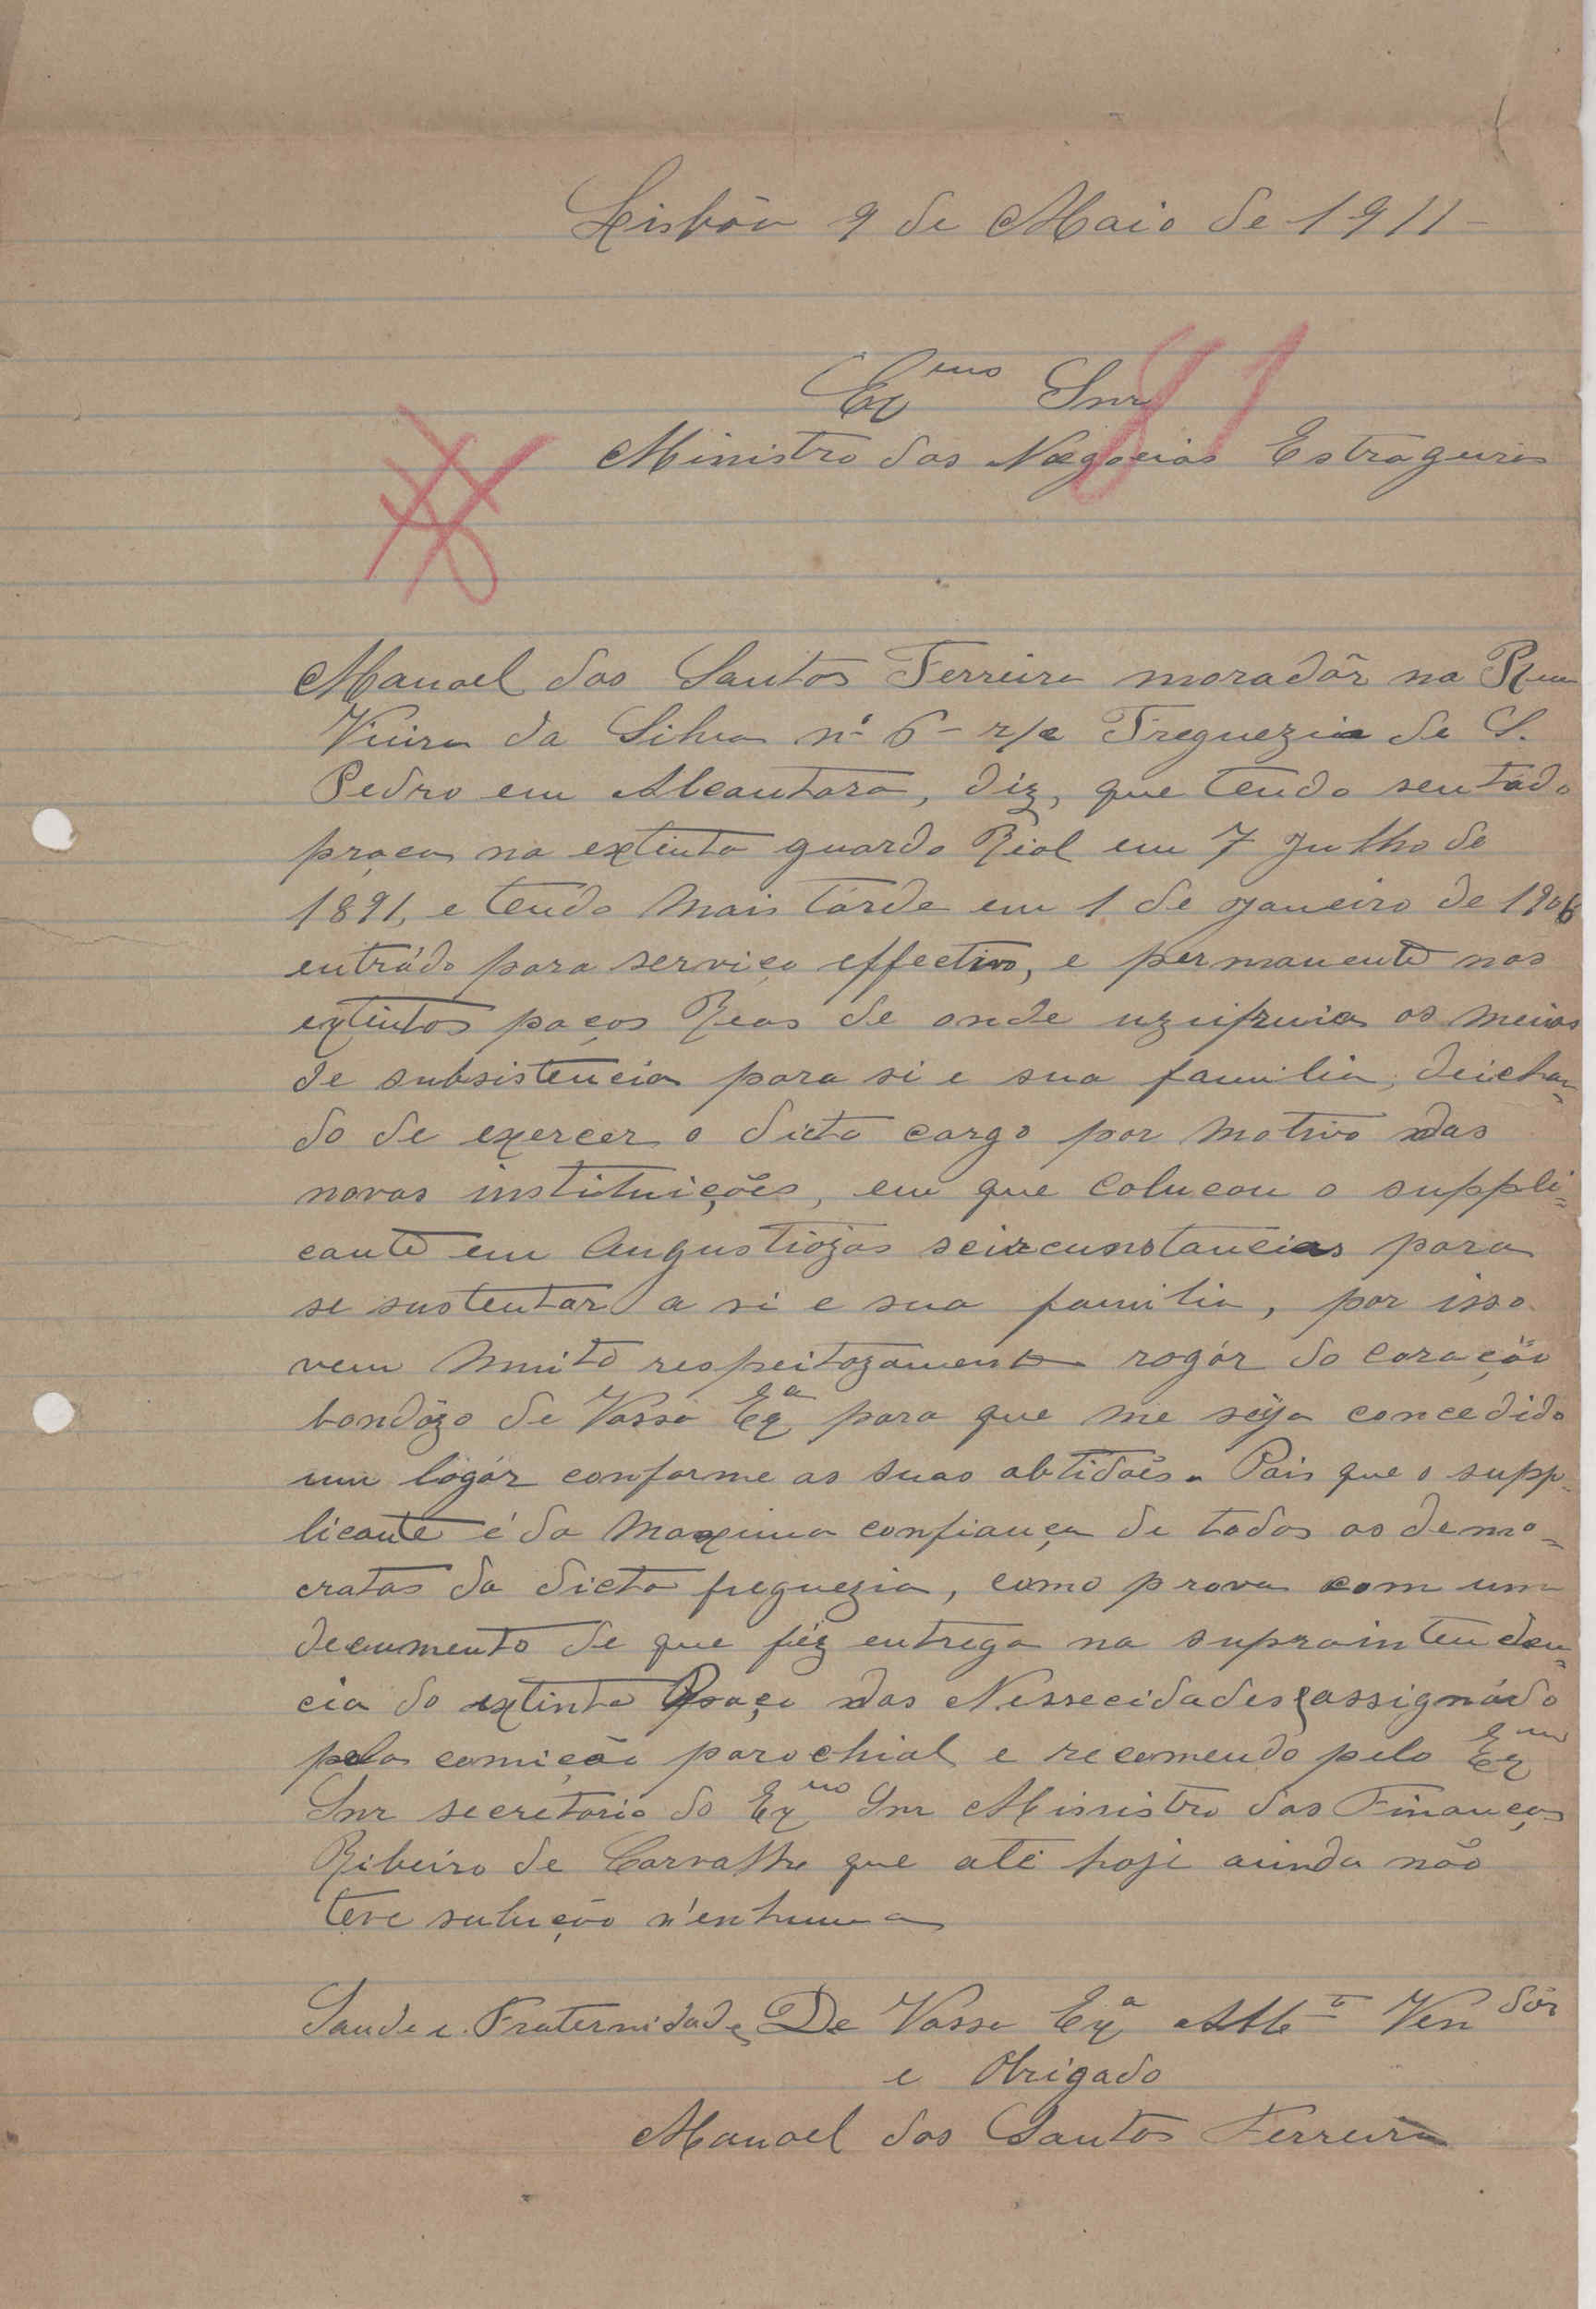 Lisbôa 9 de Maio de 1911-
Exmo Snr
81
Ministro dos Negocios Estrageiros
Manoel dos Santos Ferreira moradôr na Rua
Vieira da Silva nº 6- r/c Freguezia de S.
Pedro em Alcantara, diz, que tendo sentádo
praça na extinta guarda Rial em 7 Julho de
1891, e tendo mais tárde em 1 de Janeiro de 1906
entrádo para serviço effectivo, e permanente nos
extintos paços Reas de onde uzufruia os meios
de subsistencia para si e sua familia, deichan=
do de exercer o dicto cargo por motivo das
novas instituições, em que colucou o suppli=
cante em Angustiozas seircunstancias para
se sustentar a si e sua familia, por isso
vem muito respeitozamente rogár do coração
bondôzo de Vossa Exa para que me seija concedido
um logár conforme as suas abtidoẽs. Pois que o supp-
licante é da maxima confiança de todos os demo=
cratas da dicta freguezia, como prova com um
documento de que fêz entrega na supraintenden=
cia do extinto Paço das Nessecidades e assignádo
pela comição parochial e recomendo pelo Exmo
Snr secretario do Exmo Snr Ministro das Finanças
Ribeiro de Carvalho que até hoje ainda não
teve solução n'enhuma
Saude e Fraternidade, De Vossa Exa Atto Vendôr
e Obrigado
Manoel dos Santos Ferreira